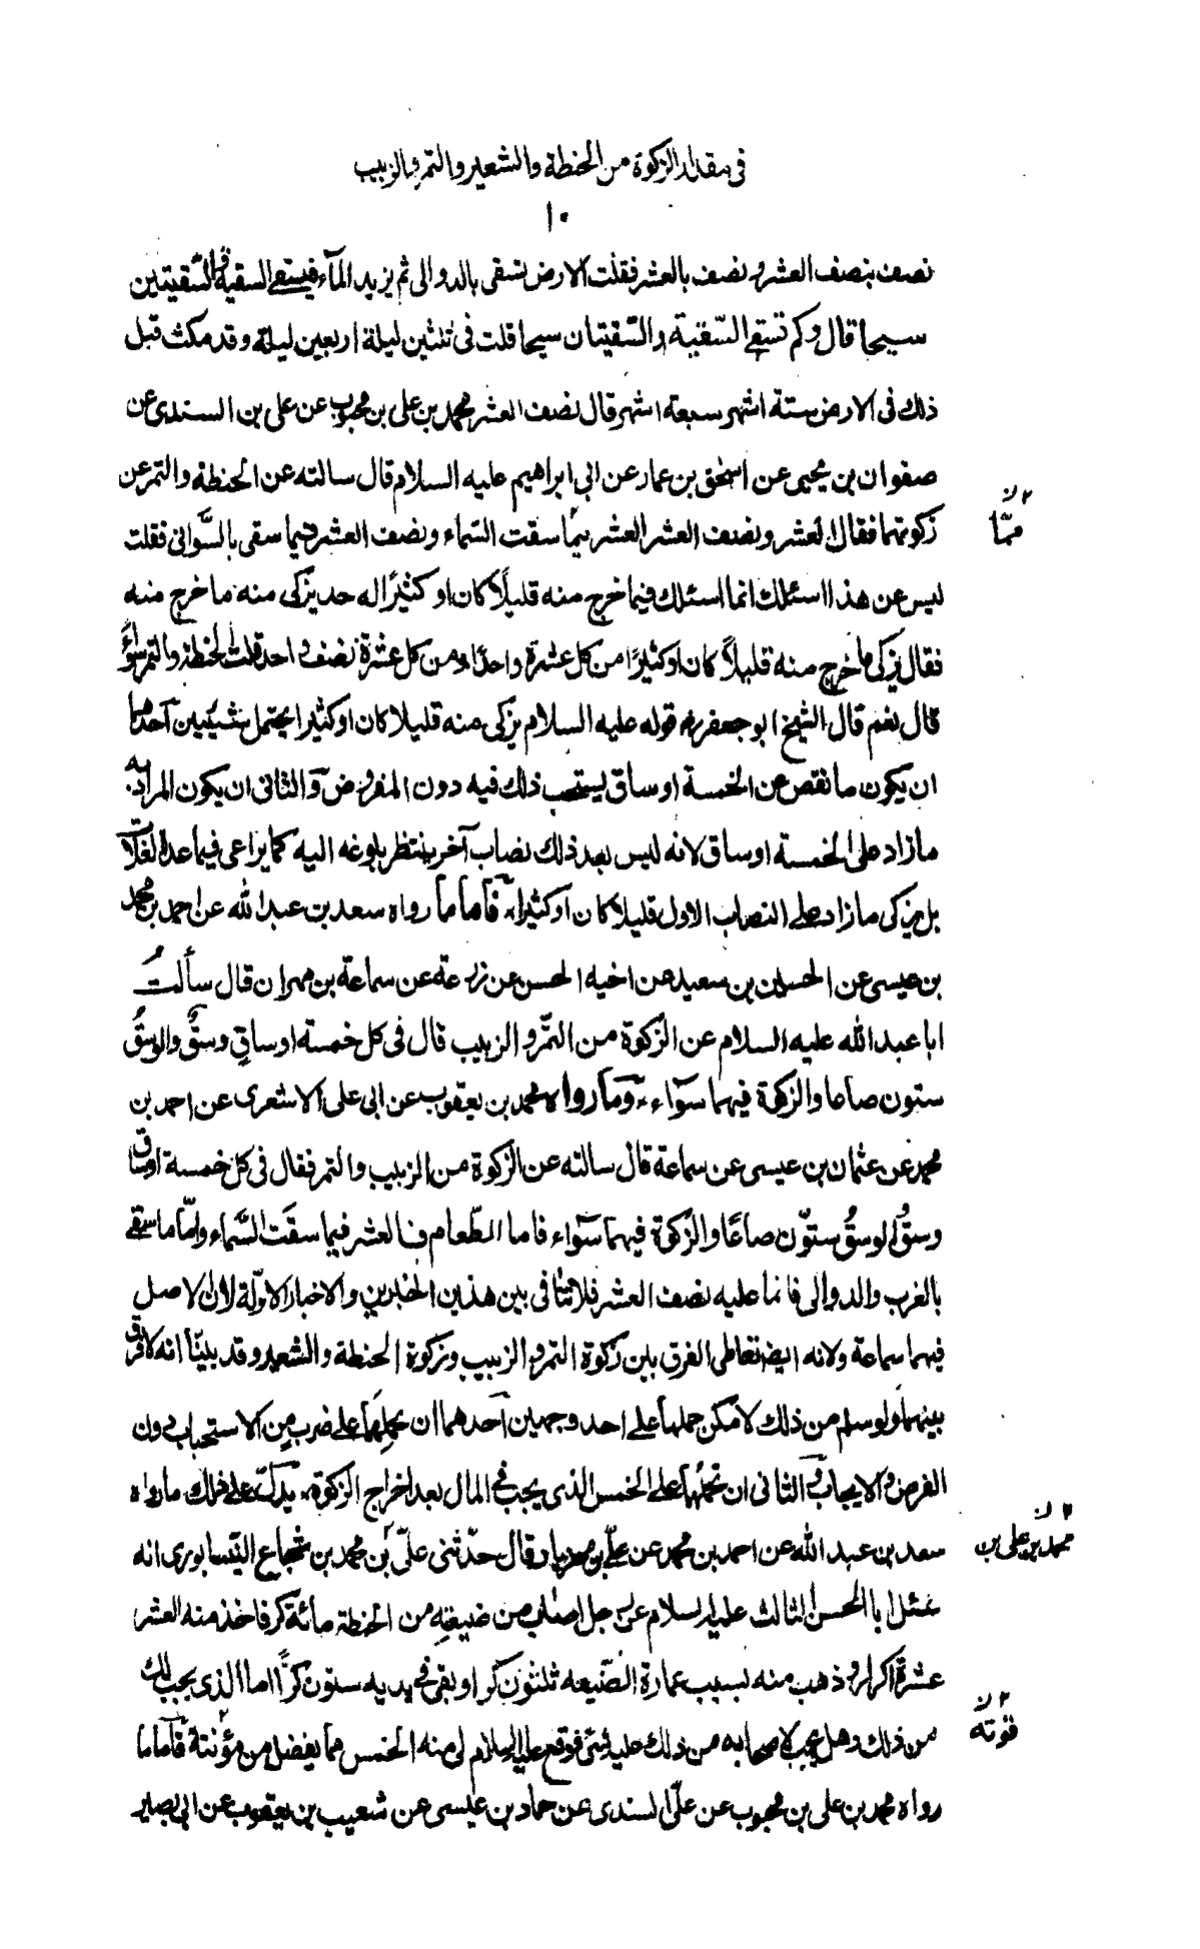 في مقدار الزكوة من الحنطة والشعير والتمر والزبيب
١٠
نصف بنصف العشر ونصف بالعشر فقلت الارض تسقى بالدوالى ثم يزيد المآء فيسقى السقية والسّقيتين
سيحا قال وكم تسقى السّقية والسّقيتان سيحا قلت فى ثلثين ليلة اربعين ليلة وقد مكث قبل
ذلك فى الارض ستة اشهر سبعة اشهر قال نصف العشر محمد بن على بن محبوب عن على بن السندى عن
صفوان بن يحيى عن اسحق بن عمار عن ابى ابراهيم عليه السلام قال سالته عن الحنطة والتمر عن
زكوتهما فقال العشر ونصف العشر العشر فيما سقت السّماء ونصف العشر فيما سقى بالسَّوانى فقلت
٢ لا
ممّا
ليس عن هذا اسئلك انما اسئلك فيما خرج منه قليلًا كان او كثيرًا له حد يزكى منه ما خرج منه
فقال يزكى ما خرج منه قليلاً كان او كثيرًا من كل عشرة واحدًا ومن كل عشرة نصف واحد قلت الحنطة والتمر سواءً
قال نعم قال الشيخ ابو جعفر ره قوله عليه السلام يزكى منه قليلا كان او كثيرا يحتمل شيئين آحدهما
ان يكون ما نقص عن الخمسة اوساق يستحب ذلك فيه دون المفروض وَالثانى ان يكون المراد به
مازاد على الخمسة اوساق لانه ليس بعد ذلك نصاب آخر ينتظر بلوغه اليه كما يراعى فيما عدا الغلّات
بل يزكى ما زاد على النصاب الاول قليلا كان او كثيرا، فآما ما رواه سعد بن عبد الله عن احمد بن محمد
بن عيسى عن الحسين بن سعيد عن اخيه الحسن عن زرعة عن سماعة بن مهران قال سألتُ
ابا عبد الله عليه السلام عن الزّكوة من التمّر والزبيب قال فى كل خمسة اوساقٍ وسقٌ والوسقُ
ستون صاعا والزكوة فيهما سوآء، وَمآ رواه محمد بن يعقوب عن ابى على الاشعرى عن احمد بن
محمد عن عثمان بن عيسى عن سماعة قال سالته عن الزكوة من الزبيب والتمر فقال فى كل خمسة اوساق
وسقُ الوسقُ ستوّن صاعًا والزّكوة فيهما سوآء فاما الطّعام فالعشر فيما سقَت السَّماء وامّا ما سقى
بالغرب والدوالى فانما عليه نصف العشر فلا تنافى بين هذين الخبرين والاخبار الاوّلة لان الاصل
فيهما سماعة ولانه ايضا تعاطى الفرق بين زكوة التمر والزبيب وزكوة الحنطة والشعير وقد بيّنا انه لا فرق
بينهما ولو سلم من ذلك لامكن حملها على احد وجهين آحدهما ان نحملِهَا على ضرب مِن الاستحباب دون
الفرض والايجاب وَالثانى ان نحملها على الخمس الذى يجب فى المال بعد اخراج الزكوة، يدلّ على ذلك ما رواه
سعد بن عبد الله عن احمد بن محمد عن علىّ بن مهزيار قال حدّثنى علىّ بن محمد بن شجاع النيّسابورى انه
٢ لا
محمد بن على بن
سئل ابا الحسن الثالث عليه السلام عن رجل اصاب من ضيعته من الحنطة مائة كر فاخذ منه العشر
عشرة اكرار وذهب منه بسبب عمارة الضّيعه ثلثون كرا وبقى فى يديه ستون كرًّا ما الذى يجب لك
من ذلك وهل يجب لاصحابه من ذلك عليه شئ فوقع عليه السلام لى منه الخمس مما يفضل من مؤنته فآما ما
٢ لا
قوته
رواه محمد بن على بن محبوب عن علىّ السندى عن حماد بن عيسى عن شعيب بن يعقوب عن ابى بصير